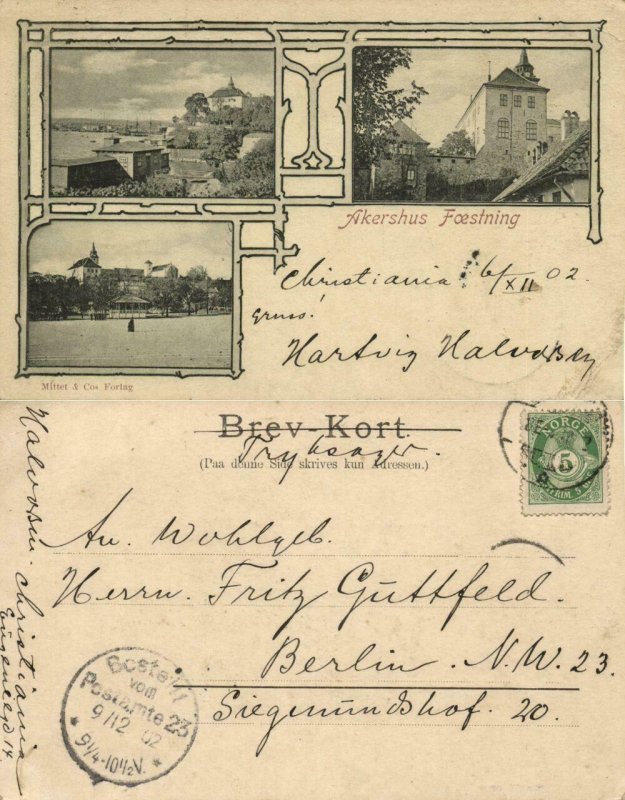 Akershus Fœstning
Christiania 6/XII 02
Gruss!
Hartvig Halvorsen
Mittet & Cos Forlag
Brev-Kort
Tryksager.
(Paa denne Side skrives kun Adressen.)
NORGE
5
POSTFRIM. 5
An. Wohlgeb.
Herrn. Fritz Guttfeld.
Berlin. N.W. 23.
Siegmundshof. 20.
Bestellt
vom
Postamte 23
9/12 02
9¼-10½V.
Halvorsen. Christiania
14